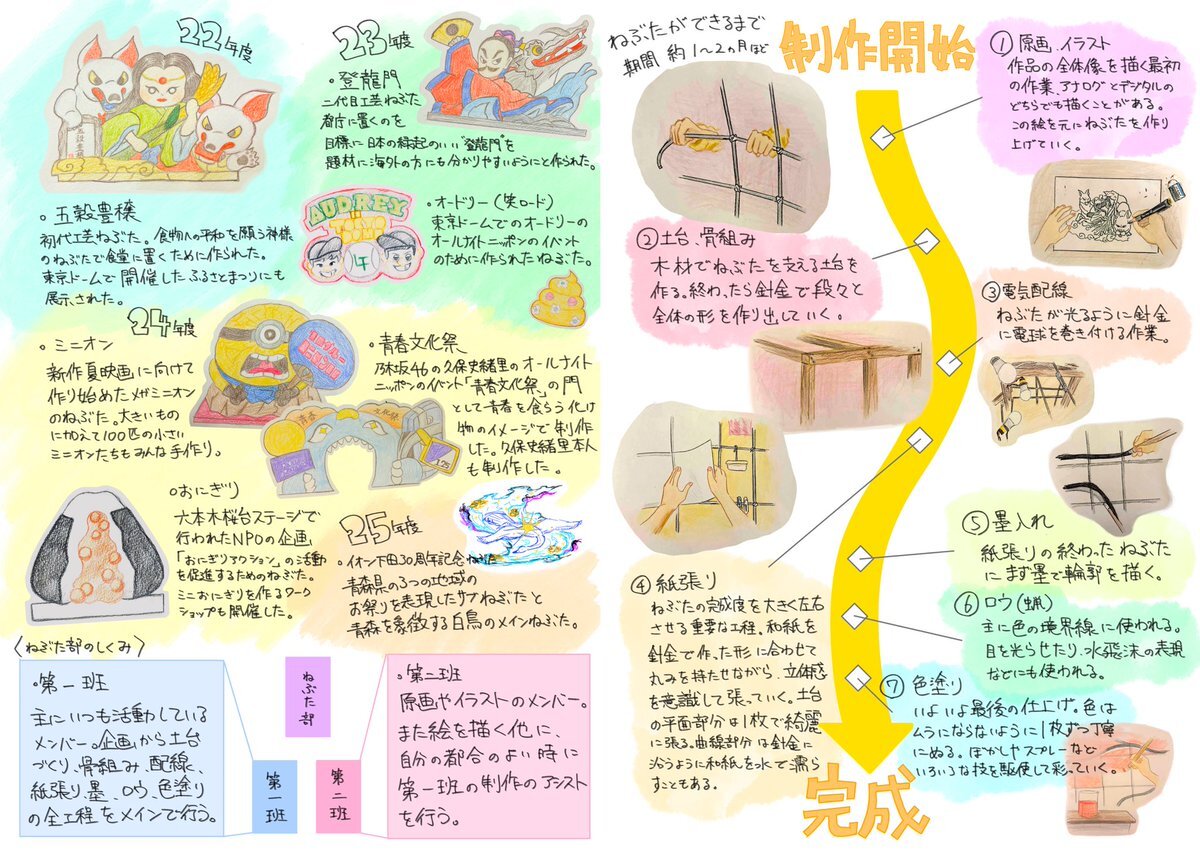 22年度
・五穀豊穣
初代工芸ねぶた。食物への平和を願う神様
のねぶたで食堂に置くために作られた。
東京ドームで開催したふるさとまつりにも
展示された。
23年度
・登龍門
二代目工芸ねぶた
都庁に置くのを
目標に日本の縁起のいい"登龍門"を
題材に海外の方にも分かりやすいようにと作られた。
AUDREY
・オードリー(笑ロード)
東京ドームでのオードリーの
オールナイトニッポンのイベント
のために作られたねぶた。
24年度
・ミニオン
新作夏映画に向けて
作り始めたメガミニオン
のねぶた。大きいもの
に加えて100匹の小さい
ミニオンたちもみんな手作り。
・青春文化祭
乃木坂46の久保史緒里のオールナイト
ニッポンのイベント「青春文化祭」の門
として青春を食らう化け
物のイメージで制作
した。久保史緒里本人
も制作した。
青春 文化祭
・おにぎり
六本木桜台ステージで
行われたNPOの企画
「おにぎりアクション」の活動
を促進するためのねぶた。
ミニおにぎりを作るワーク
ショップも開催した。
25年度
・イオン下田30周年記念ねぶた
青森県の3つの地域の
お祭りを表現したサブねぶたと
青森を象徴する白鳥のメインねぶた。
〈ねぶた部のしくみ〉
・第一班
主にいつも活動している
メンバー。企画から土台
づくり、骨組み、配線、
紙張り、墨、ロウ、色塗り
の全工程をメインで行う。
ねぶた部
第一班
第二班
・第二班
原画やイラストのメンバー。
また絵を描く他に、
自分の都合のよい時に
第一班の制作のアシスト
を行う。
ねぶたができるまで
期間 約1〜2ヵ月ほど
制作開始
① 原画、イラスト
作品の全体像を描く最初
の作業。アナログとデジタルの
どちらでも描くことがある。
この絵を元にねぶたを作り
上げていく。
② 土台、骨組み
木材でねぶたを支える土台を
作る。終わったら針金で段々と
全体の形を作り出していく。
③ 電気配線
ねぶたが光るように針金
に電球を巻き付ける作業。
④ 紙張り
ねぶたの完成度を大きく左右
させる重要な工程。和紙を
針金で作った形に合わせて
丸みを持たせながら、立体感
を意識して張っていく。土台
の平面部分は1枚で綺麗
に張る。曲線部分は針金に
沿うように和紙を水で濡ら
すこともある。
⑤ 墨入れ
紙張りの終わったねぶた
にまず墨で輪郭を描く。
⑥ ロウ(蝋)
主に色の境界線に使われる。
目を光らせたり、水飛沫の表現
などにも使われる。
⑦ 色塗り
いよいよ最後の仕上げ。色は
ムラにならないように1枚ずつ丁寧
にぬる。ぼかしやスプレーなど
いろいろな技を駆使して彩っていく。
完成